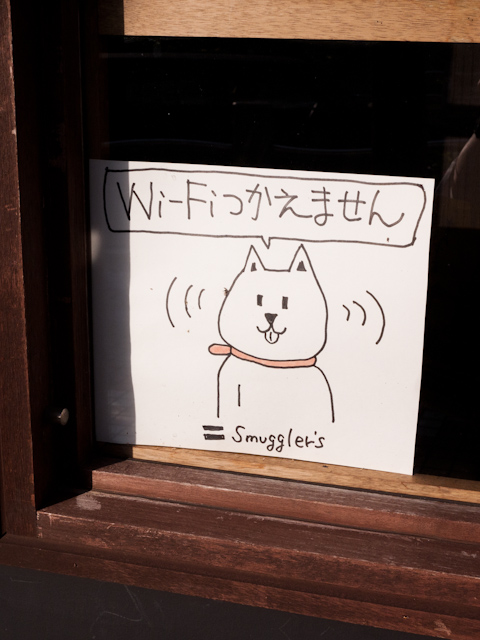 Wi-Fiつかえません
Smuggler's